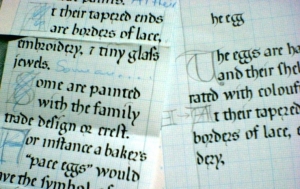 t their tapered ends
are borders of lace,
embroidery, & tiny glass
jewels.
Some are painted
with the family
trade design or crest.
For instance a baker's
"pace eggs" would
have the symbol of
he egg
The eggs are ha
and their shel
rated with colouf
At their tapered
borders of lace,
dery.